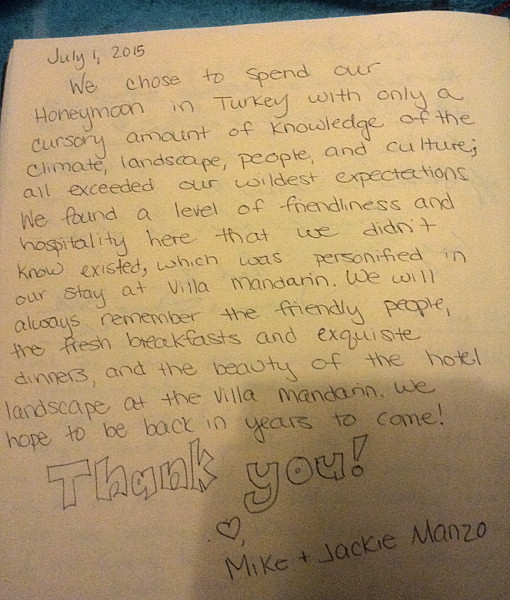 July 1, 2015
We chose to spend our
Honeymoon in Turkey with only a
cursory amount of knowledge of the
climate, landscape, people, and culture;
all exceeded our wildest expectations
We found a level of friendliness and
hospitality here that we didn't
know existed, which was personified in
our stay at Villa Mandarin. We will
always remember the friendly people,
the fresh breakfasts and exquisite
dinners, and the beauty of the hotel
landscape at the Villa Mandarin. We
hope to be back in years to come!
Thank you!
♡,
Mike + Jackie Manzo